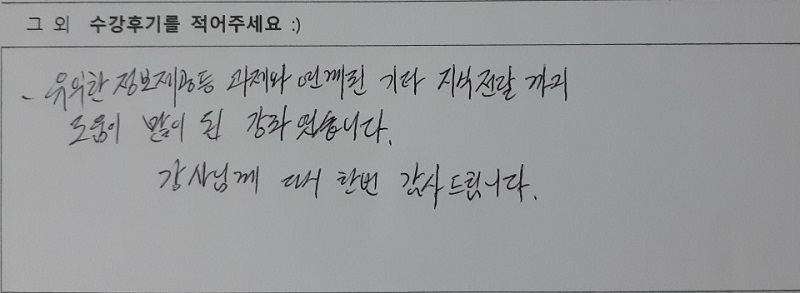 그 외 수강후기를 적어주세요 :)
- 유익한 정보제공등 과제와 연계된 기타 지식전달 까지
도움이 많이 된 강좌 였습니다.
강사님께 다시 한번 감사드립니다.